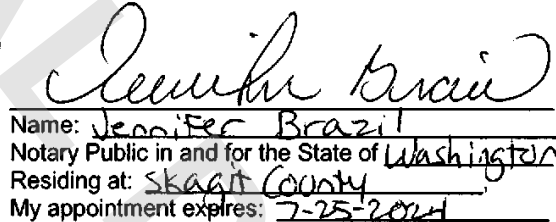 Jennifer Brazil
Name: Jennifer Brazil
Notary Public in and for the State of Washington
Residing at: Skagit County,
My appointment expires: 7-25-2024